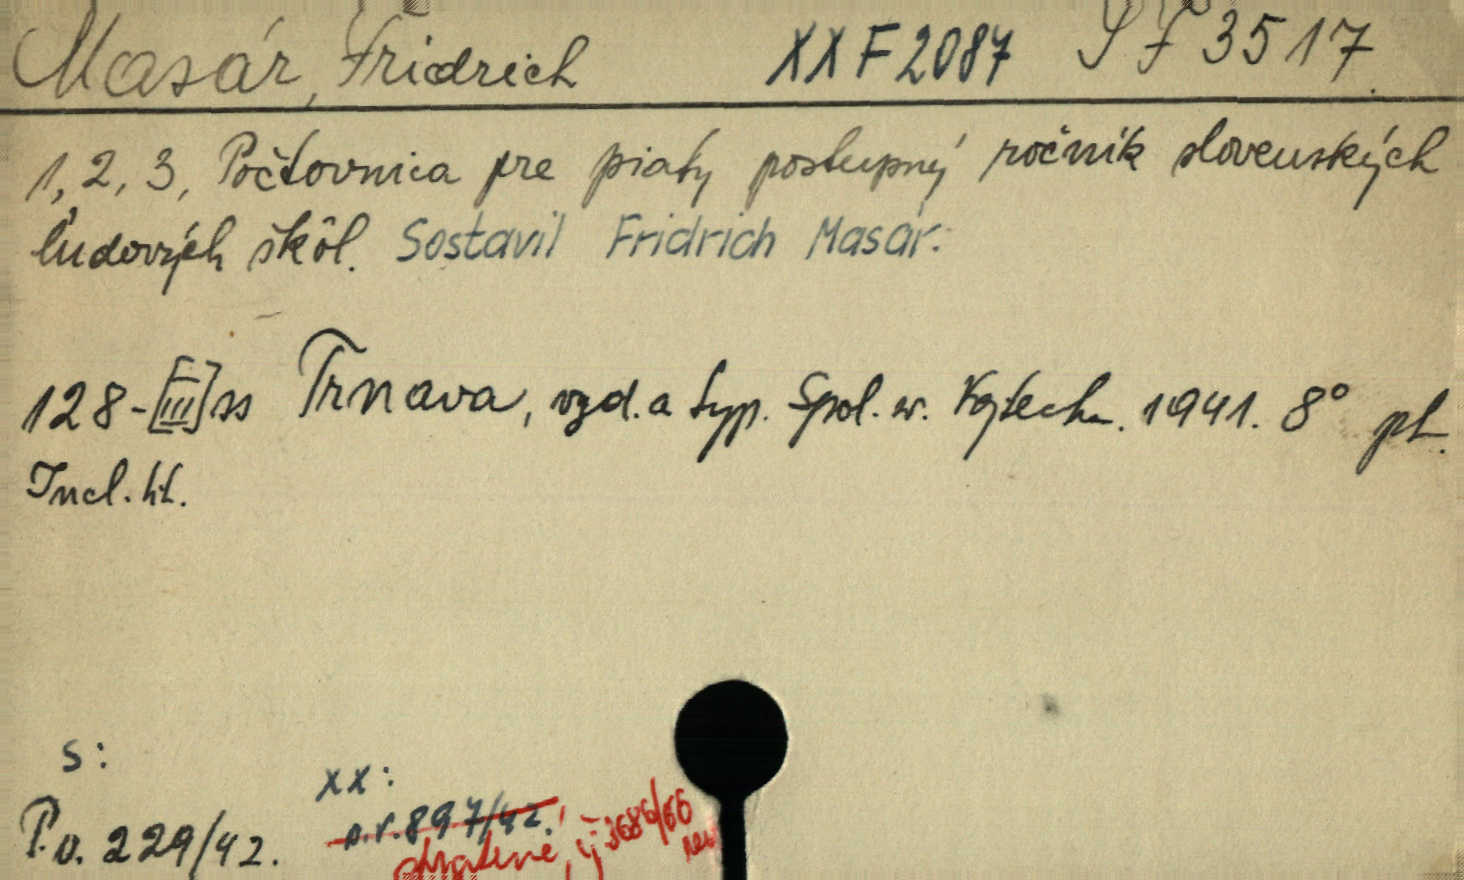 Masár, Fridrich XX F 2087 SF 3517.
1, 2, 3, Počtovnica pre piaty postupný ročník slovenských
ľudových škôl. Sostavil Fridrich Masár.
128-[III] ss Trnava, vyd. a typ. Spol. sv. Vojtecha. 1941. 8° pl.
Incl. tit.
S:
P.v. 229/42.
XX:
p.r. 897/42.
3686/66